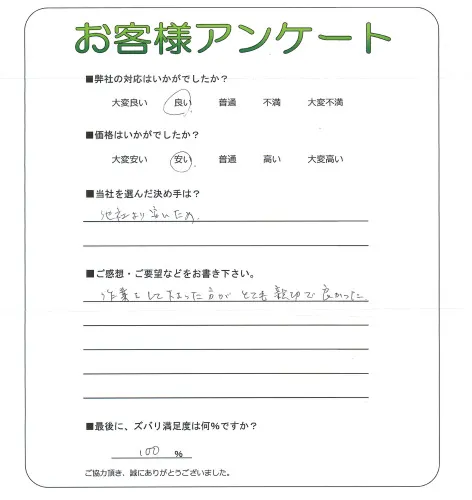 お客様アンケート
■弊社の対応はいかがでしたか？
大変良い 良い 普通 不満 大変不満
■価格はいかがでしたか？
大変安い 安い 普通 高い 大変高い
■当社を選んだ決め手は？
他社より安いため.
■ご感想・ご要望などをお書き下さい。
作業をして下さった方がとても親切で良かった
■最後に、ズバリ満足度は何％ですか？
100 ％
ご協力頂き、誠にありがとうございました。